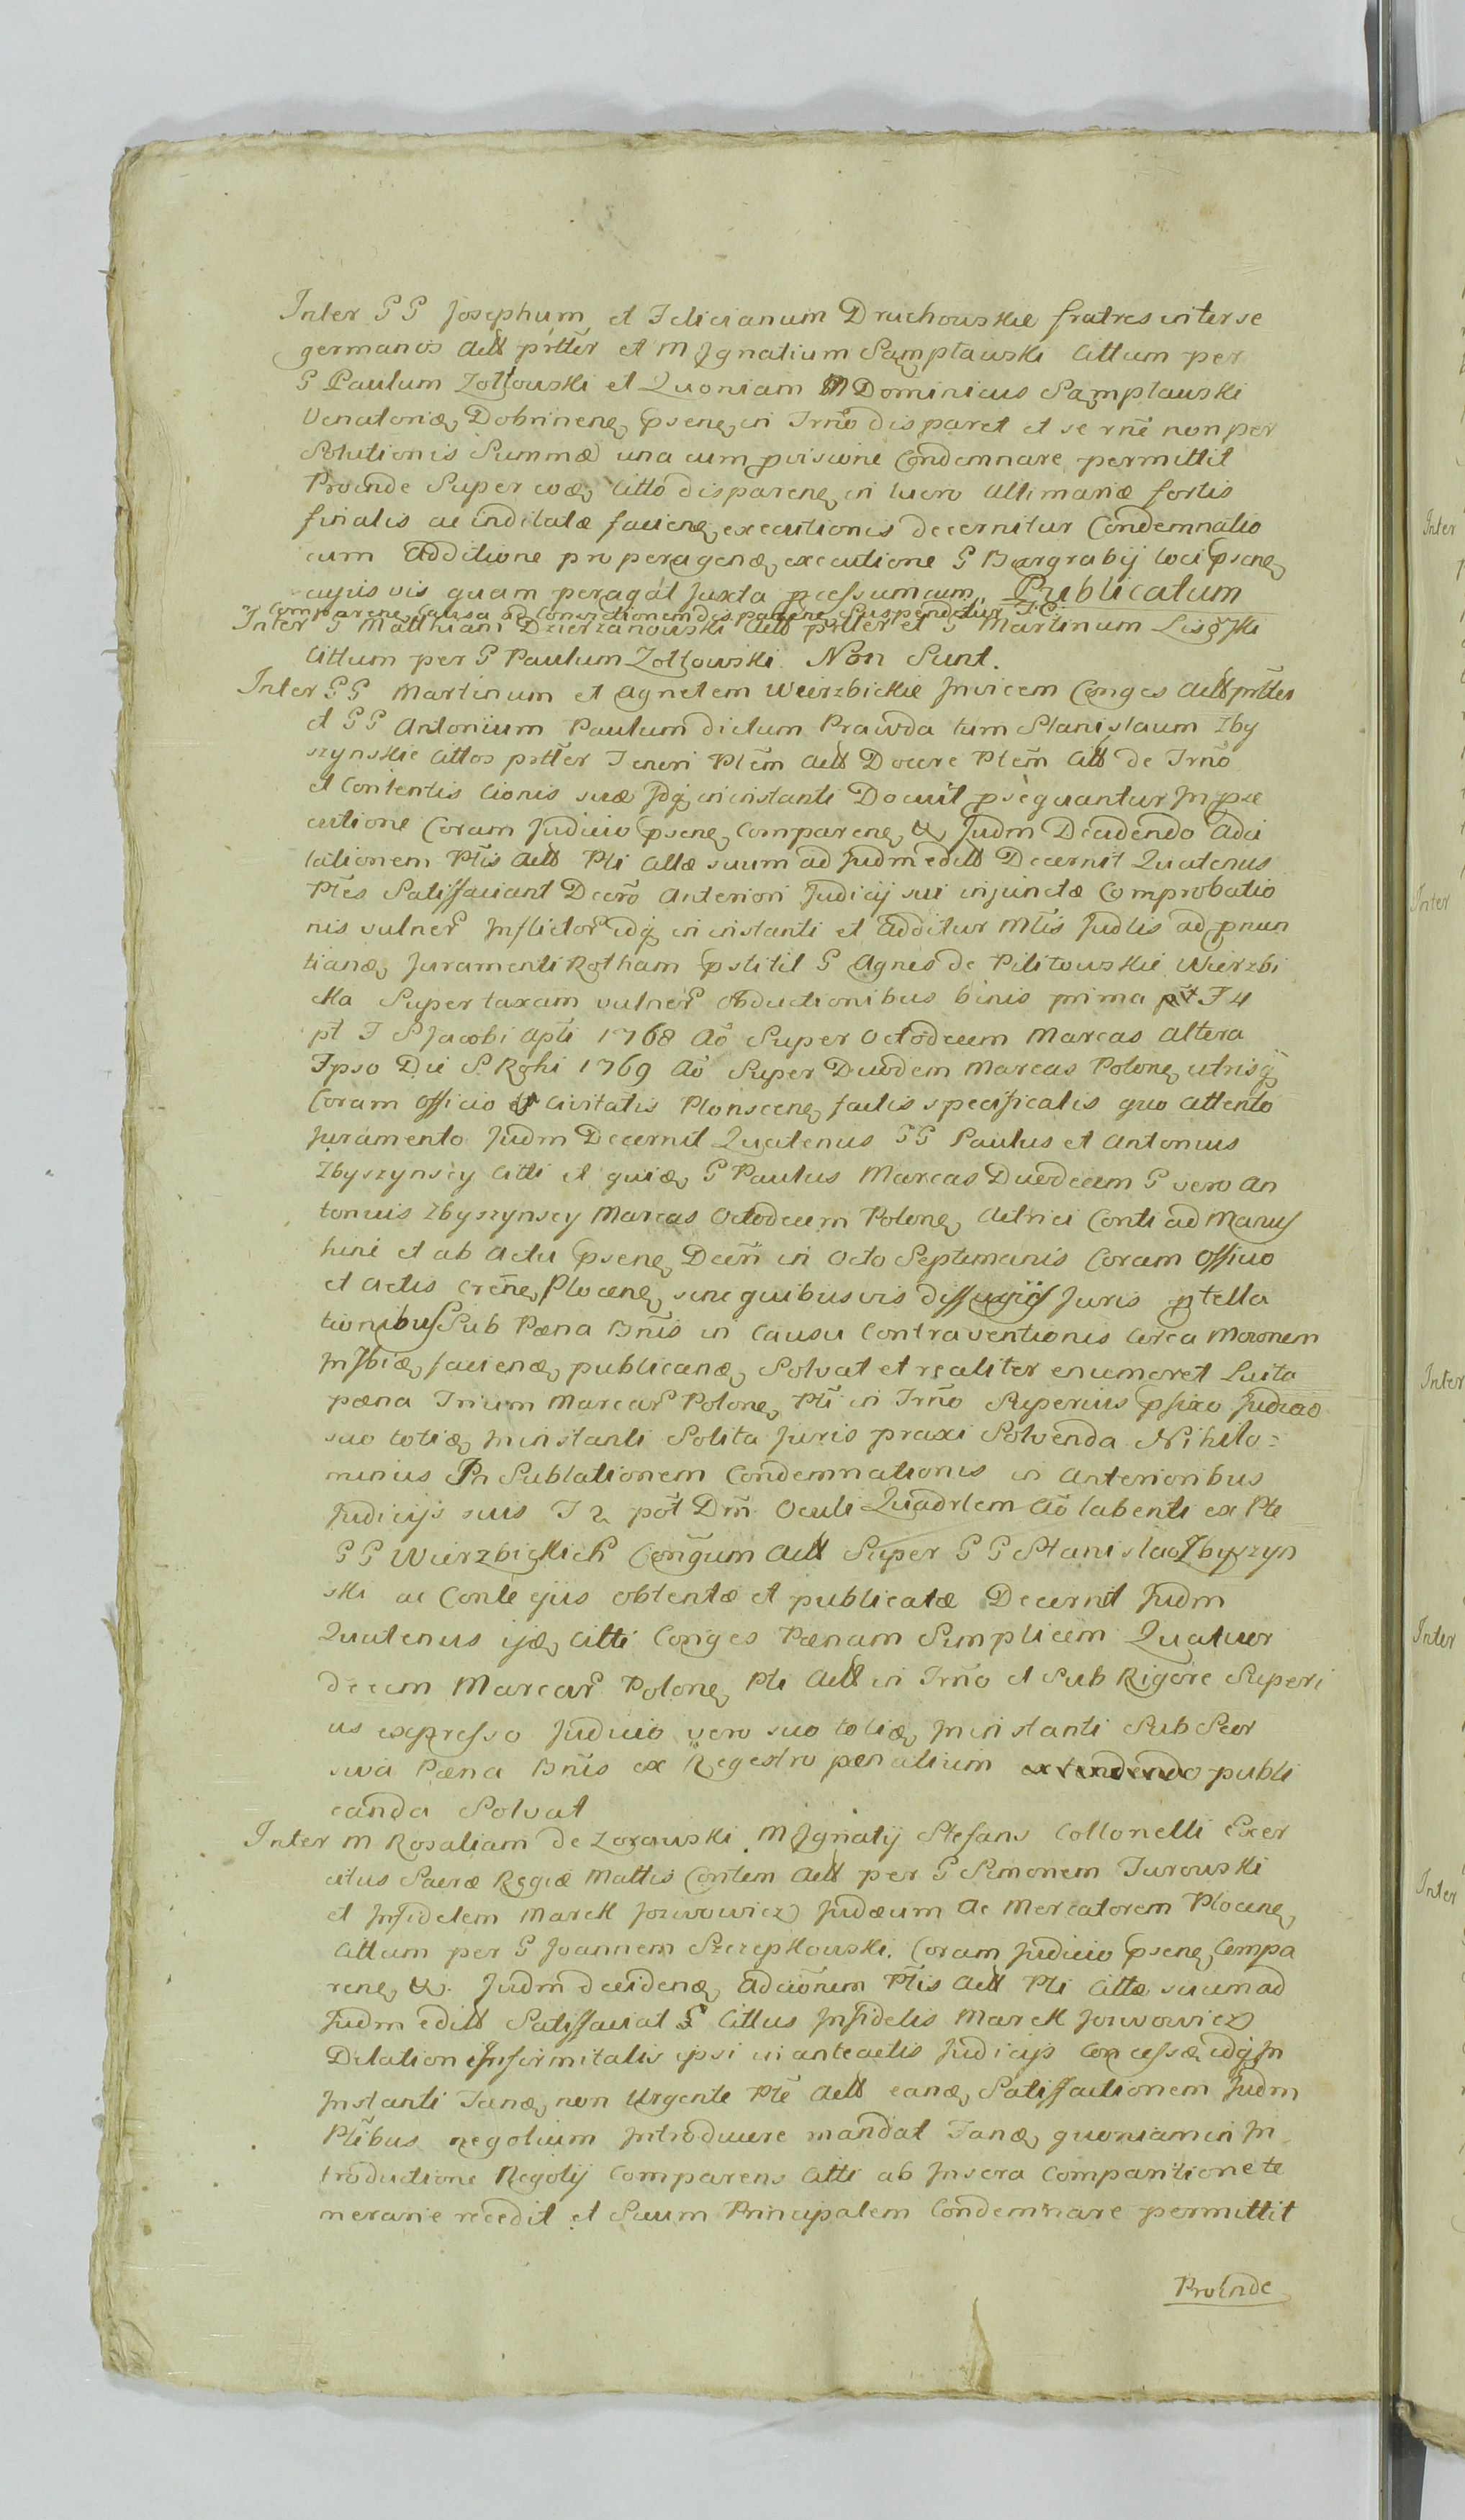 Inter GG Josephum et Felicianum Druchowskie fratres inter se
germanos Actt prtter et M Ignatium Sampławski Cittum per
G Paulum Zołtowski et Quoniam M Dominicus Sampławski
Venatoriæ, Dobrinene, psene, in Trno disparet et se rne non per
Solutionis Summæ una cum pvisione Condemnare permittit
Proinde Super eoæ, Citto disparene, in lucro Altimariæ fortis
finalis ac inditatæ faciene, executionis decernitur Condemnatio
cum Additione pro peragenæ, executione G Burgrabij loci psene,
cujus vis quam peragat juxta pcessum cum. Publicatum
Comparene, Causa ad Convictionem disparene, Suspenditur T. C.
Inter G Matthiam Dzierzanowski Actt prtter et G Martinum Lisoski
Cittum per G Paulum Zołtowski. Non Sunt.
Inter GG Martinum et Agnetem Wierzbickie Invicem Conges Actt prttes
et GG Antonium Paulum dictum Prawda tum Stanislaum Zby
szynskie Cittos prtter Teneri Ptem Actt Docere Ptem Citt de Trno
et Contentis Cionis suæ Idq in instanti Docuit psequantur In pse
cutione Coram Judicio psene, Comparene, & Judm Decidendo Adci
tationem Ptis Actt Pti Cittæ suum ad Judm editt Decernit Quatenus
Ptes Satisfaciant Decro Anteriori Judicij sui injunctæ Comprobatio
nis vulner Inflictor idq in instanti et Additur Mtis Judtis ad pnun
tianæ, Juramenti Rotham pstitit G Agnes de Pilitowskie Wierzbi
cka Super taxam vulner obductionibus binis prima F 4
pt F S Jacobi Apti 1768 Ao Super Octodecem Marcas Altera
Ipso Die S. Rochi 1769 Ao Super Duodem Marcas Polone, utrisq
Coram Officio Civitatis Plonscene, factis specificatis quo attento
Juramento Judm Decernit Quatenus GG Paulus et Antonius
Zbyszynscy Citti et quiæ, G Paulus Marcas Duodecem G vero An
tonius Zbyszynscy Marcas Octodecem Polone, Actrici Conti ad Manus
hinc et ab Actu psene, Decri in Octo Septimanis Coram Officio
et Actis Crene, Plocene, sine quibusvis diffugijs Juris ptella
tionibus Sub Pæna Bnis in Causu Contraventionis Circa Motionem
Insbiæ, facienæ, publicanæ, Solvat et realiter enumeret Luita
pæna Trium Marcar Polone, Pti in Trno Superius pfixo Judicio
suo totiæ, in instanti Solita Juris praxi Solvenda Nihilo=
minus In Sublationem Condemnationis in Anterioribus
Judicijs suis F 2 pot Dm Oculi Quadrlem Ao labenti ex Pte
GG Wierzbickich Congum Actt Super GG Stanislao Zbyszyn
ski ac Conte ejus obtentæ et publicatæ Decernit Judm
Quatenus ijæ, Citti Conges Pænam Simplicem Quatuor
decem Marcar Polone, Pti Actt in Trno et Sub Rigore Superi
us expresso Judicio vero suo totiæ, In instanti Sub Seor
siva Pæna Bnis ex Regestro pænalium extendendo publi
canda Solvat
Inter M Rosaliam de Zorawski M Ignatij Stefans Collonelli Exer
citus Sacræ Regiæ Mattis Contem Actt per G Simonem Turowski
et Infidelem Marek Jozwowicz Judæum ac Mercatorem Plocene,
Cittum per G Joannem Szczepkowski. Coram Judicio psene, Compa
rene, &. Judm decidenæ, Adcionem Ptis Actt Pti Cittæ suum ad
Judm editt Satisfaciat Cittus Infidelis Marek Jozwowicz
Dilationi Infirmitatis ipsi in anteactis Judicijs Concessæ idq In
Instanti Tanæ, non Urgente Pte Actt eanæ, Satisfactionem Judm
Ptibus negotium Introducere mandat Tanæ, quoniam in In
troductione Negotij Comparens Citti ab Insera Comparitione te
merarie recedit et Suum Principalem Condemnare permittit
Proinde
Inter
Inter
Inter
Inter
Inter